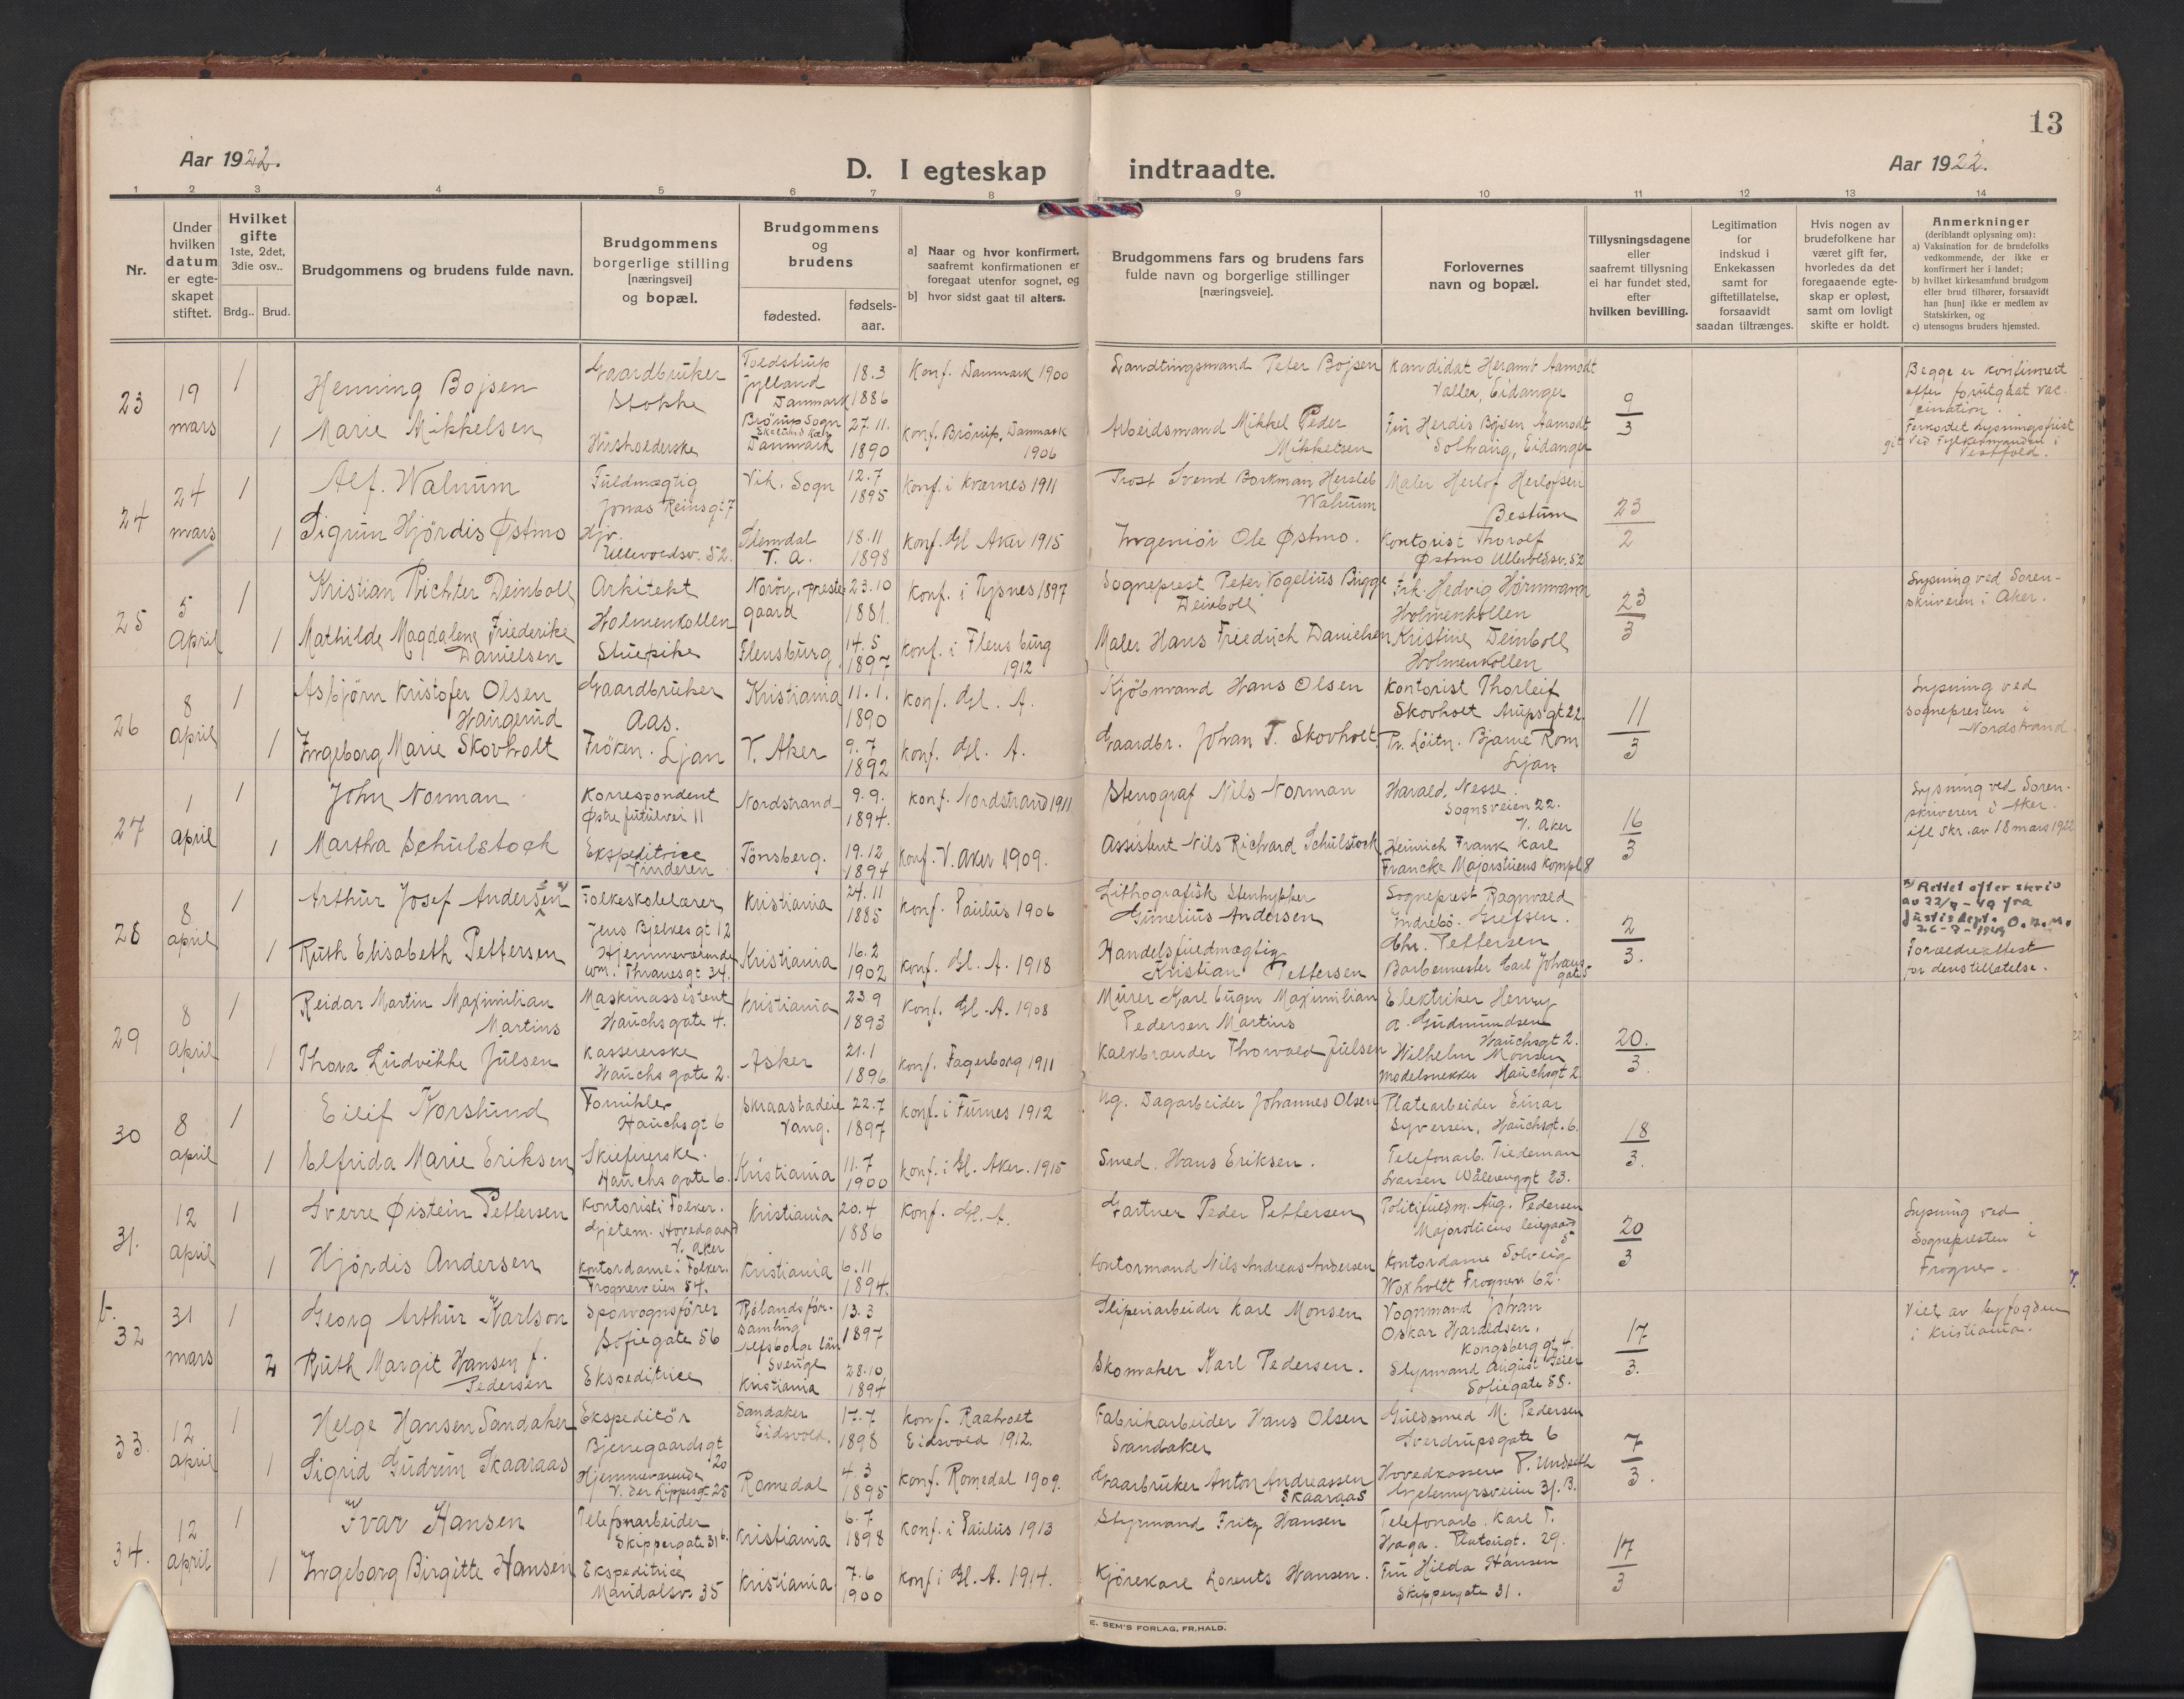 13
Aar 1922.
D. I egteskap indtraadte.
Aar 1922.
1 2 3 4 5 6 7 8 9 10 11 12 13 14
Nr.
Under
hvilken
datum
er egte-
skapet
stiftet.
Hvilket
gifte
1ste, 2det,
3die osv..
Brdg.. Brud.
Brudgommens og brudens fulde navn.
Brudgommens
borgerlige stilling
[næringsvei]
og bopæl.
Brudgommens
og
brudens
fødested.
fødsels-
aar.
a] Naar og hvor konfirmert,
saafremt konfirmationen er
foregaat utenfor sognet, og
b] hvor sidst gaat til alters.
Brudgommens fars og brudens fars
fulde navn og borgerlige stillinger
[næringsveie].
Forlovernes
navn og bopæl.
Tillysningsdagene
eller
saafremt tillysning
ei har fundet sted,
efter
hvilken bevilling.
Legitimation
for
indskud i
Enkekassen
samt for
giftetillatelse,
forsaavidt
saadan tiltrænges.
Hvis nogen av
brudefolkene har
været gift før,
hvorledes da det
foregaaende egte-
skap er opløst,
samt om lovligt
skifte er holdt.
Anmerkninger
(deriblandt oplysning om):
a) Vaksination for de brudefolks
vedkommende, der ikke er
konfirmert her i landet;
b) hvilket kirkesamfund brudgom
eller brud tilhører, forsaavidt
han [hun] ikke er medlem av
Statskirken, og
c) utensogns bruders hjemsted.
23
19
mars
1
Henning Bojsen
Gaardbruker
Stokke
Toldstrup
Jylland
Danmark
18.3
1886
Konf. Danmark 1900
Landtingsmand Peter Bojsen
Kandidat Heramb Aamodt
Valler, Eidanger
9
3
Begge er konfirmert
efter forutgaat vac-
cination.
Forkortet lysningsfrist
git ved Fylkesmanden i
Vestfold.
1
Marie Mikkelsen
Husholderske
Brörup Sogn
Danmark
27.11.
1890
Konf. Brörup, Danmark
1906
Arbeidsmand Mikkel Peder
Mikkelsen
Fru Herdis Bojsen Aamodt
Solhaug, Eidanger
24
24
mars
1
Alf. Walnum
Fuldmægtig
Jonas Reinsgt 7
Vik. Sogn
12.7
1895
Konf. i Kværnes 1911
Prost Svend Borkman Hersleb
Walnum
Maler Herlof Herlofsen
Bestum
23
2
1
Sigrun Hjördis Østmo
Hjv.
Ullevoldsv. 52.
Slemdal
V. A.
18.11
1898
Konf. Gl Aker 1915
Ingeniör Ole Østmo.
Kontorist Thorolf
Østmo Ullevoldsv. 52
25
5
April
1
Kristian Richter Deinboll
Arkitekt
Holmenkollen
Noröy, preste-
gaard
23.10
1881.
Konf. i Tysnes 1897
Sogneprest Peter Vogelius Brügge
Deinboll
Frk. Hedvig Hörnmann
Holmenkollen
23
3
Lysning ved Soren-
skriveren i Aker.
1
Mathilde Magdalene Friederike
Danielsen
Stuepike
Flensburg
14.5
1897
Konf. i Flensburg
1912
Maler Hans Friedrich Danielsen
Kristine Deinboll
Holmenkollen
26
8
April
1
Asbjörn Kristofer Olsen
Haugerud
Gaardbruker
Aas.
Kristiania
11.1.
1890
Konf. Gl. A.
Kjöbmand Hans Olsen
Kontorist Thorleif
Skovholt Arupsgt 22.
11
3
Lysning ved
sognepresten i
Nordstrand.
1
Ingeborg Marie Skovholt
Fröken. Ljan
V. Aker
9.7
1892
Konf. Gl. A.
Gaardbr. Johan T. Skovholt.
Pr. Löitn. Bjarne Rom
Ljan
27
1
April
1
John Norman
Korrespondent
Nordstrand
9.9.
1894.
Konf. Nordstrand 1911
Stenograf Nils Norman
Harald Nesse.
Sognsveien 22.
V. Aker
16
3
Lysning ved Soren-
skriveren i Aker.
ifl skr. av 18 mars 1922
1
Martha Schulstock
Ekspeditrice
Vinderen
Tönsberg.
19.12
1894
Konf. V. Aker 1909.
Assistent Nils Richard Schulstock
Heinrich Frank Karl
Francke Majorstuens Kompl 8
28
8
april
1
Arthur Josef Andersen
Folkeskolelærer
Jens Bjelkesgt 12
Kristiania
24.11
1885
Konf. Paulus 1906
Lithografisk Stentrykker
Gunerius Andersen
Sogneprest Ragnvald
Indrebö. Grefsen.
2
3.
x) Rettet efter skriv
av 22/7 - 49 fra
Justisdept.
26-7-1949
1
Ruth Elisabeth Pettersen
Hjemmeværende
Wm. Thranesgt 34.
Kristiania
16.2
1902
Konf. Gl. A. 1918
Handelsfuldmægtig
Kristian Pettersen
Chr. Pettersen
Barbermester Carl Johans
gate 5
Forældreattest
for dens tillatelse.
29
8
April
1
Reidar Martin Maximilian
Martins
Maskinassistent
Hauchsgate 4.
Kristiania
23 9
1893
Konf. Gl. A. 1908
Murer Karl Eugen Maximilian
Pedersen Martins
Elektriker Henry
A. Gudmundsen
Hauchsgt 2.
20.
3.
1
Thora Ludvikke Julsen
Kassererske
Hauchs gate 2.
Asker
21.1
1896
Konf. Fagerborg 1911
Kalkbrænder Thorvald Julsen
Wilhelm Monsen
Modelsnekker Hauchsgt 2
30
8
april
1
Eilif Korslund
Fornikler
Hauchsgt 6
Skraastadeie
Vang.
22.7
1897
Konf. i Furnes 1912
Ug. Dagarbeider Johannes Olsen
Platearbeider Einar
Syversen, Hauchsgt. 6.
18
3.
1
Elfrida Marie Eriksen
Skiefirerske.
Hauchs gate 6.
Kristiania
11.7
1900
Konf. i Gl. Aker. 1915
Smed. Hans Eriksen.
Telefonarb. Tiedeman
Larsen Wålerenggt 23.
31.
12
April
1
Sverre Øistein Pettersen
Kontorist i Folker.
Gjetem. Hovedgaard
V. Aker
Kristiania
20.4
1886
Konf. Gl. A.
Gartner Peder Pettersen
Politifuldm. Aug. Pedersen
Majorstuens leiegaard
5
20
3
Lysning ved
Sognepresten i
Frogner.
1
Hjördis Andersen
Kontordame i Folker.
Frognerveien 54.
Kristiania
6.11
1894.
Kontormand Nils Andreas Andersen
Kontordame Solveig
Woxholtt Frognerv. 62.
b.
32
31
mars
1
Georg Arthur Karlson
Sporvognsförer
Sofiegate 56
Rölandsför-
samling
Elfsborgs län
Sverige
13.3
1897
Sliperiarbeider Karl Monsen
Vognmand Johan
Oskar Haraldsen.
Kongsberggt 4.
17
3.
Viet av byfogden
i Kristiania.
2
Ruth Margit Hansen f.
Pedersen
Ekspeditrice
Kristiania
28.10
1894
Skomaker Karl Pedersen.
Styrmand August Feier
Sofiegate 58.
33.
12
April
1
Helge Hansen Sandaker
Ekspeditör
Bjerregaardsgt
20
Sandaker
Eidsvold.
17.7
1898
Konf. Raaholt
Eidsvold 1912.
Fabrikarbeider Hans Olsen
Sandaker
Guldsmed M. Pedersen
Sverdrupsgate 6
7
3.
1
Sigrid Gudrun Skaaraas
Hjemmeværende
V. der Lippesgt 25
Romedal
4.3
1895
Konf. Romedal 1909.
Gaarbruker Anton Andreassen
Skaaraas
Hovedkasserer P. Undseth
Gjetemyrsveien 31. B.
34.
12
April
1
Ivar Hansen
Telefonarbeider
Skippergate 31 b.
Kristiania
6.7
1898
Konf. i Paulus 1913
Styrmand Fritz Hansen
Telefonarb. Karl T.
Haga. Platousgt. 29.
17
3
1
Ingeborg Birgitte Hansen
Ekspeditrice
Maridalsv. 35
Kristiania
7.6
1900
Konf i Gl. A. 1914.
Kjörekarl Lorents Hansen.
Fru Hilda Hansen
Skippergate 31.
E. SEM'S FORLAG, FR.HALD.